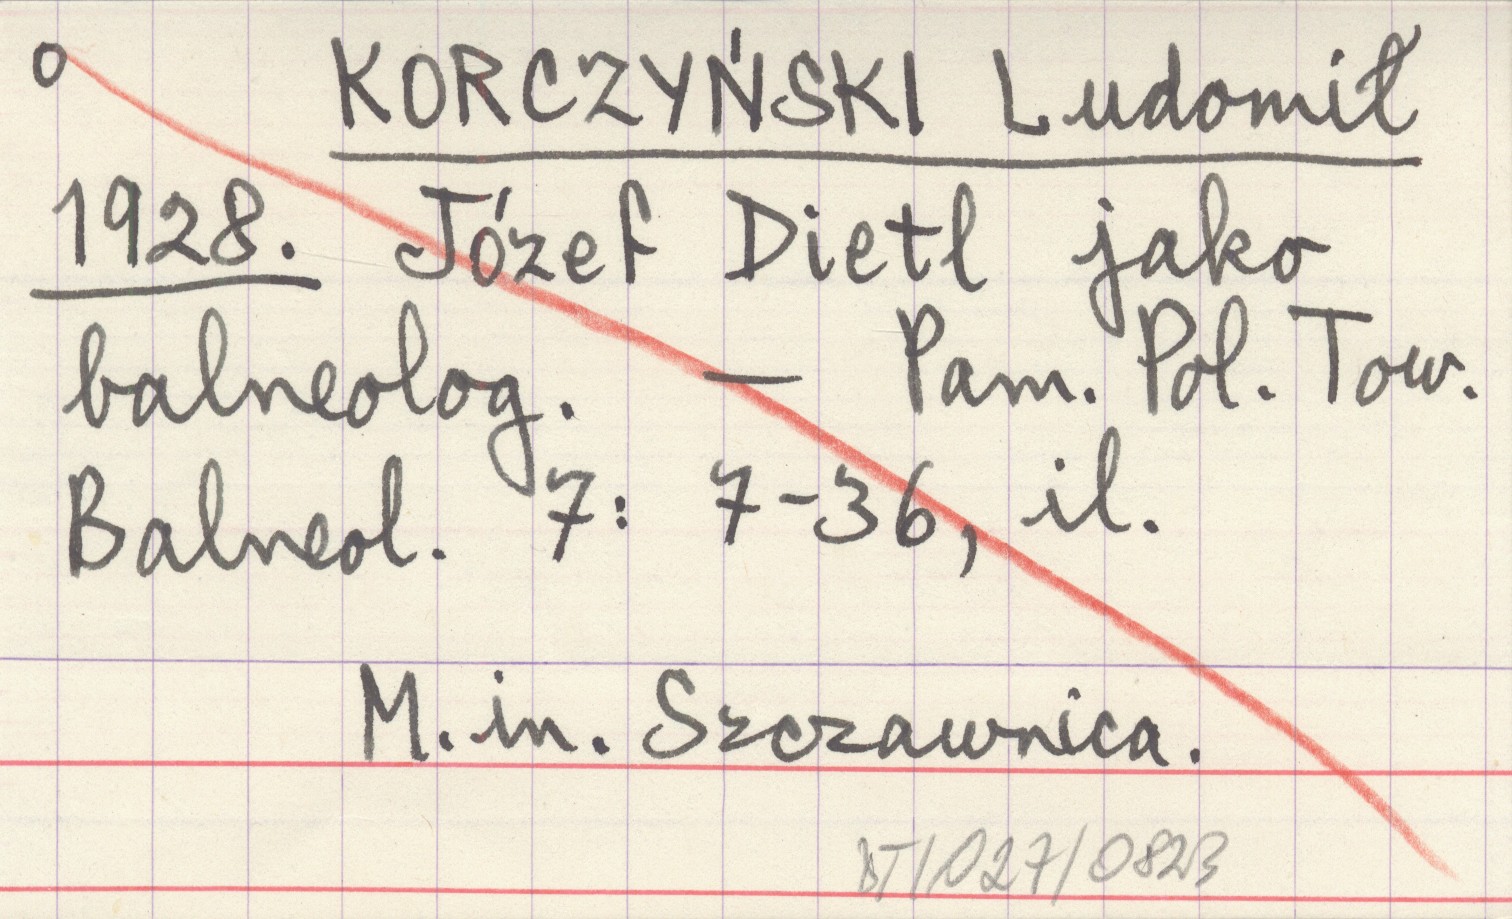 o KORCZYŃSKI Ludomił
1928. Józef Dietl jako
balneolog. — Pam. Pol. Tow.
Balneol. 7: 7-36, il.
M. in. Szczawnica.
BT/027/0823